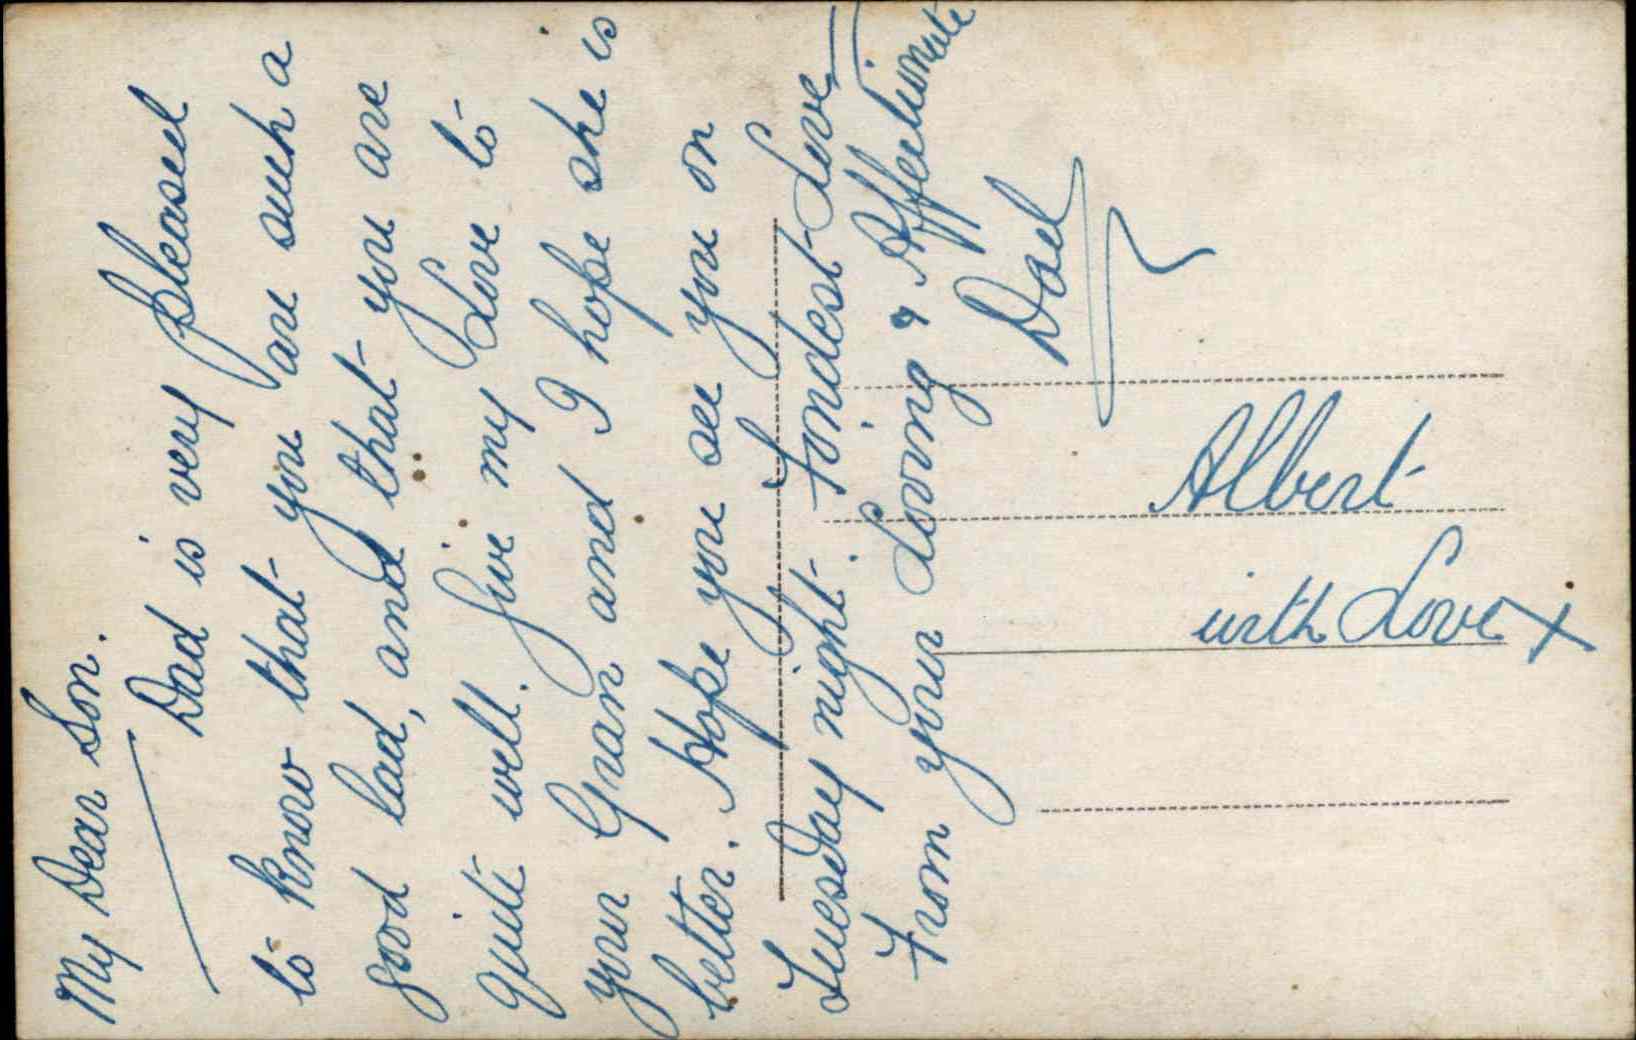 My Dear Son.
Dad is very pleased
to know that you are such a
good lad, and that you are
quite well. Give my Love to
your Gran and I hope she is
better. Hope you see you on
Tuesday night. Fondest Love,
From your Loving & Affectionate
Dad
Albert
with Love X